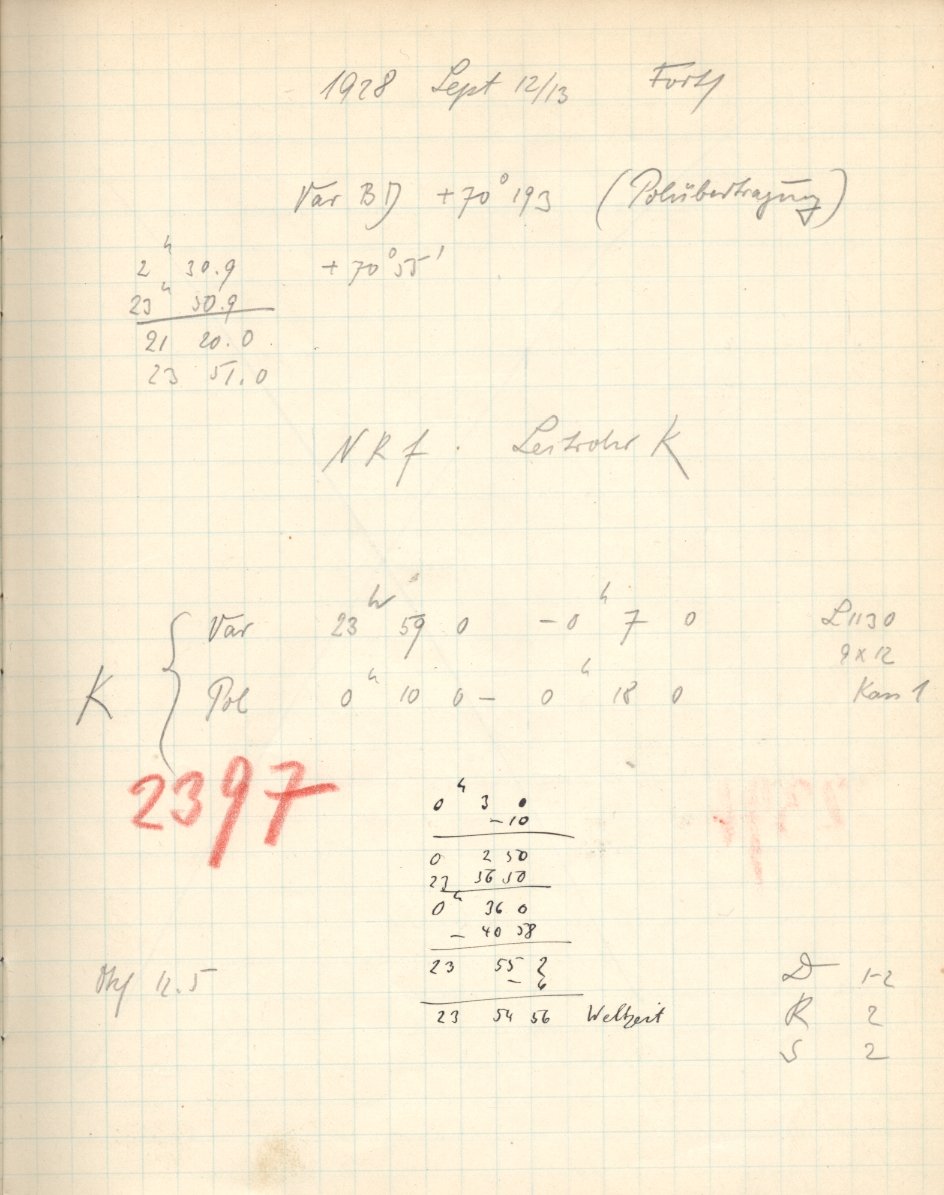 1928 Sept 12/13 Forts
Var BD +70° 193 (Polübertragung)
2ʰ 30.9 + 70° 55'
23ʰ 50.9
21 20.0
23 51.0
NRf. Leitrohr K
Var 23ʰ 59 0 - 0ʰ 7 0 L1130
9 x 12
K Pol 0ʰ 10 0 - 0ʰ 18 0 Kass 1
2397
0ʰ 3 0
- 10
0 2 50
23 56 50
0ʰ 36 0
- 40 58
23 55 2
- 6
23 54 56 Weltzeit
12.5
D 1-2
R 2
S 2